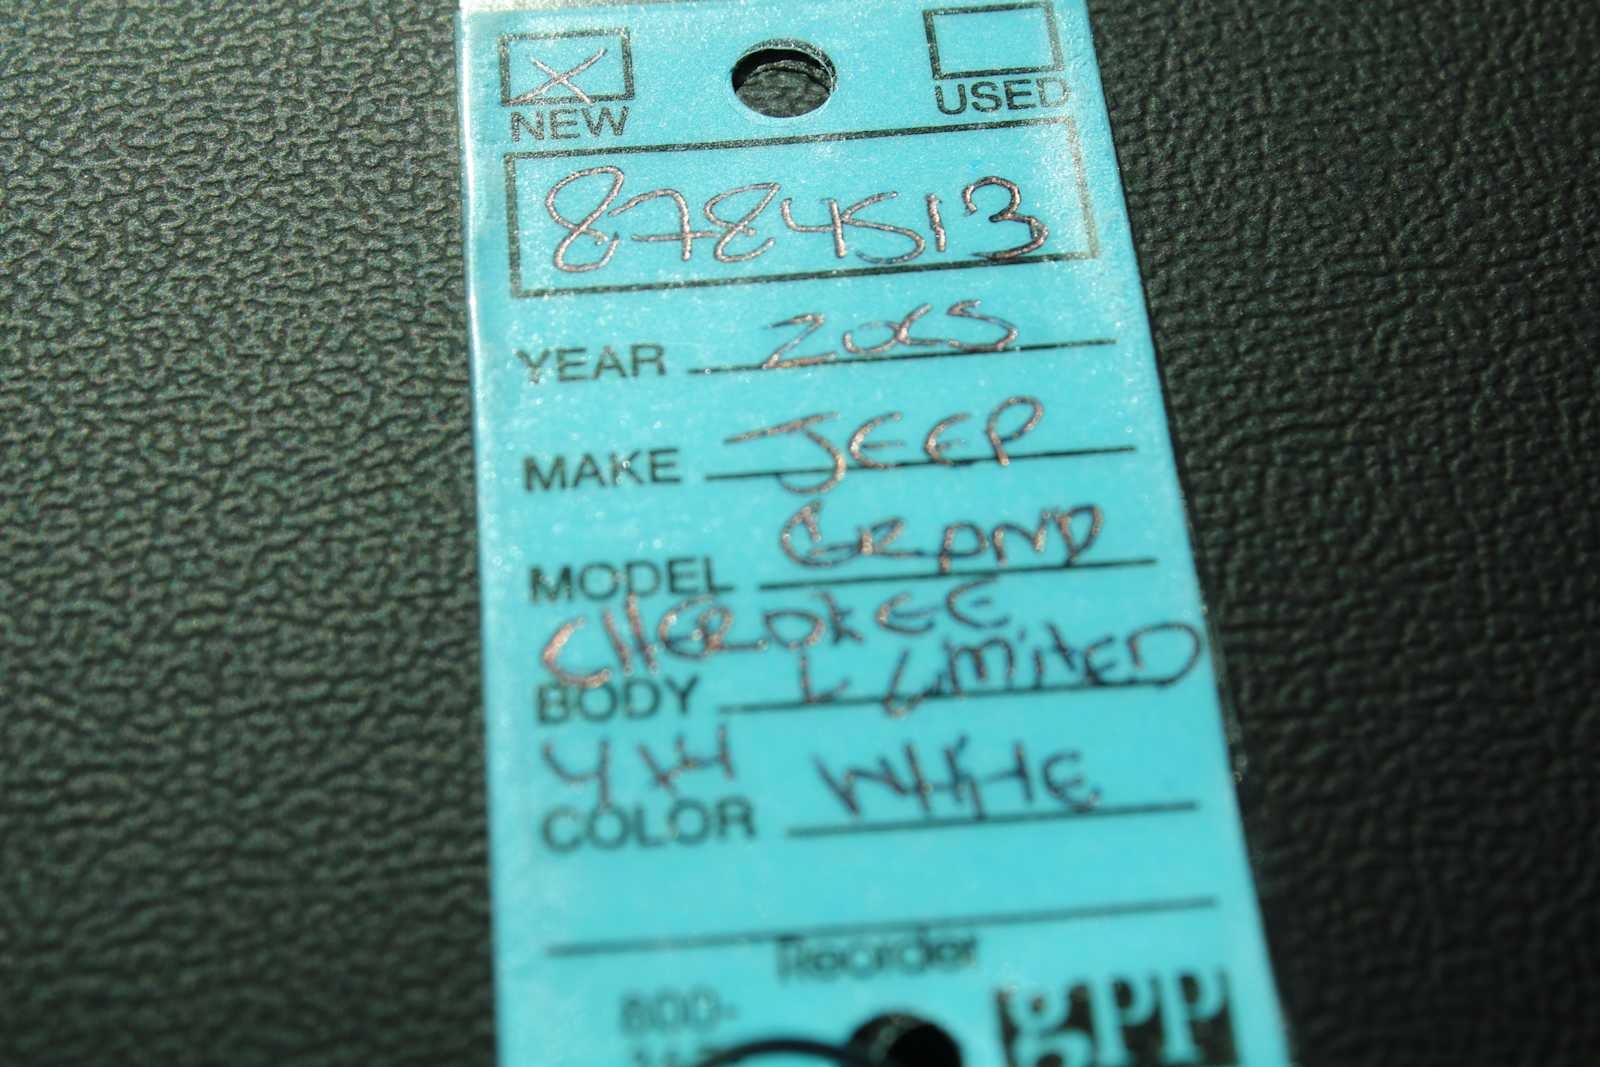 X
NEW
USED
8784513
YEAR 2005
MAKE JEEP
MODEL GRAND
CHEROKEE
BODY L LIMITED
4x4
COLOR WHITE
Reorder
800-
gpp